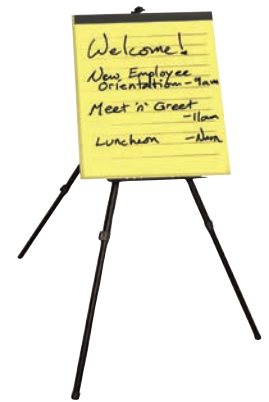 Welcome!
New Employee
Orientation - 9am
Meet 'n' Greet
- 11am
Luncheon - Noon